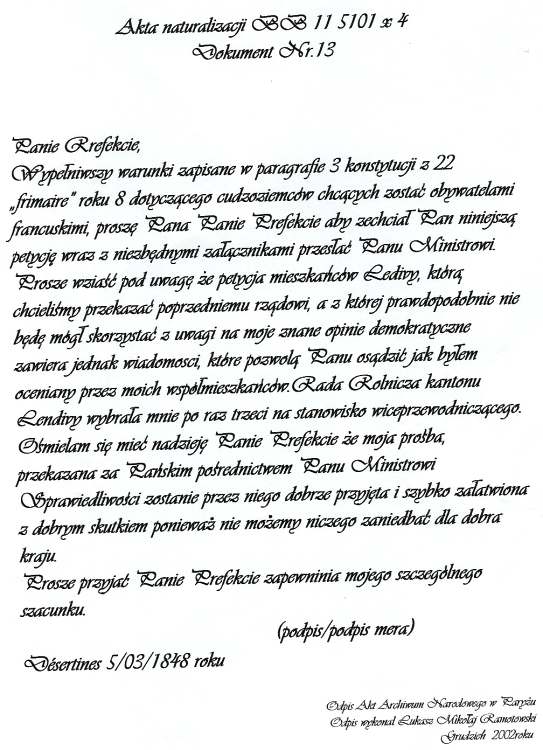 Akta naturalizacji BB 11 5101 x 4
Dokument Nr.13
Panie Rrefekcie,
Wypełniwszy warunki zapisane w paragrafie 3 konstytucji z 22
„frimaire” roku 8 dotyczącego cudzoziemców chcących zostać obywatelami
francuskimi, proszę Pana Panie Prefekcie aby zechciał Pan niniejszą
petycję wraz z niezbędnymi załącznikami przesłać Panu Ministrowi.
Prosze wziaść pod uwagę że petycja mieszkańców Ledivy, którą
chcieliśmy przekazać poprzedniemu rządowi, a z której prawdopodobnie nie
będę mógł skorzystać z uwagi na moje znane opinie demokratyczne
zawiera jednak wiadomosci, które pozwolą Panu osądzić jak byłem
oceniany przez moich współmieszkańców.Rada Rolnicza kantonu
Lendivy wybrała mnie po raz trzeci na stanowisko wiceprzewodniczącego.
Ośmielam się mieć nadzieję Panie Prefekcie że moja prośba,
przekazana za Pańskim pośrednictwem Panu Ministrowi
Sprawiedliwości zostanie przez niego dobrze przyjęta i szybko załatwiona
z dobrym skutkiem ponieważ nie możemy niczego zaniedbać dla dobra
kraju.
Prosze przyjać Panie Prefekcie zapewninia mojego szczególnego
szacunku.
(podpis/podpis mera)
Désertines 5/03/1848 roku
Odpis Akt Archiwum Narodowego w Paryżu
Odpis wykonał Łukasz Mikołaj Ramotowski
Grudzień 2002roku